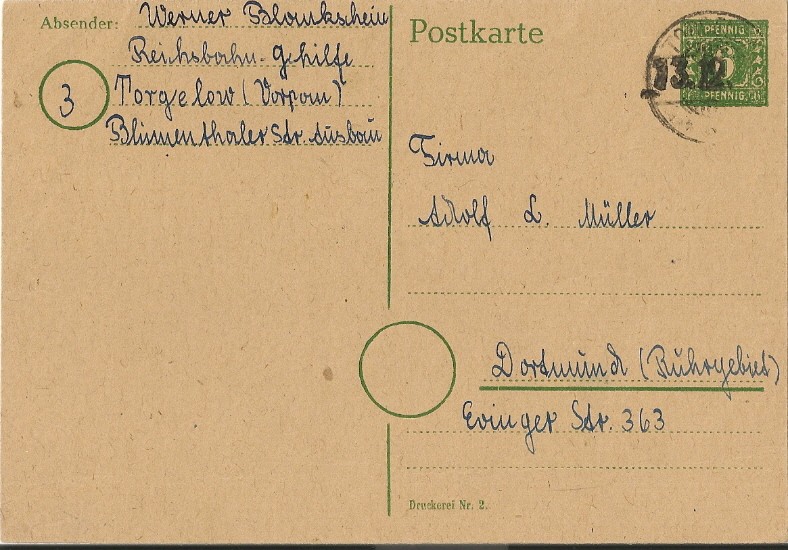 Absender: Werner Blankschein
Reichsbahn-Gehilfe
3 Torgelow (Vorpom)
Blumenthaler Str. Ausbau
Postkarte
PFENNIG
6
PFENNIG
13.12
Firma
Adolf L. Müller
Dortmund (Ruhrgebiet)
Evinger Str. 363
Druckerei Nr. 2.